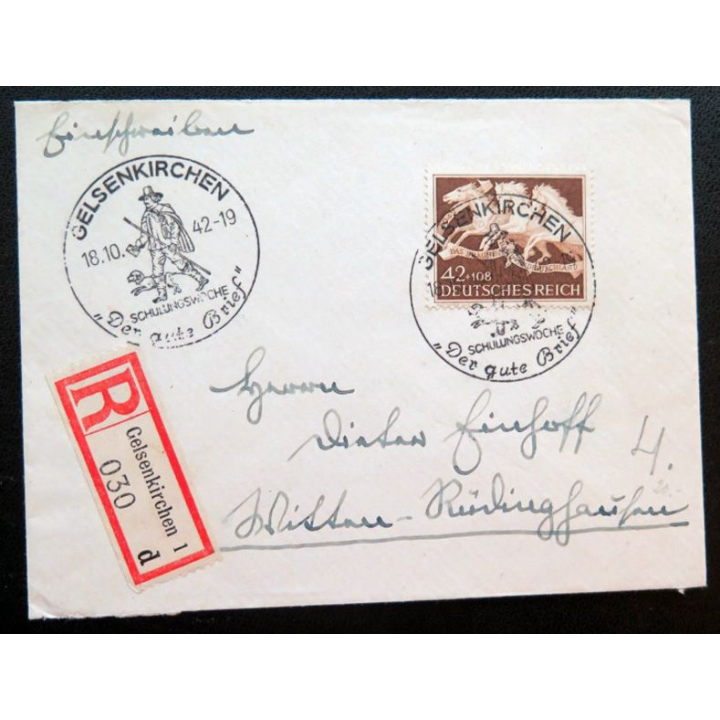 Einschreiben
GELSENKIRCHEN
18.10. 42-19
SCHULUNGSWOCHE
„Der gute Brief"
GELSENKIRCHEN
42+108
DEUTSCHES REICH
SCHULUNGSWOCHE
„Der gute Brief"
R
Gelsenkirchen 1
030 d
Herrn
Dieter Einhoff
4.
Witten-Rüdinghausen